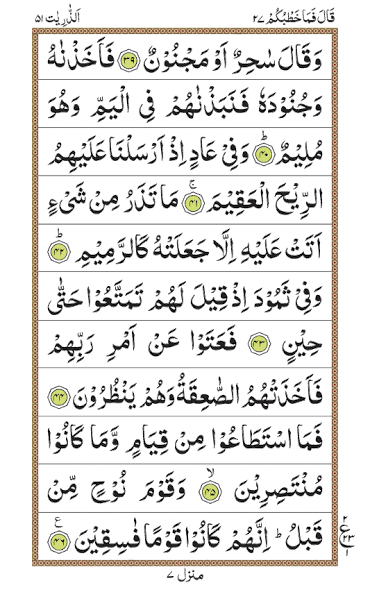 قَالَ فَمَا خَطْبُكُمْ ٢٧ اَلذّٰرِیٰت ٥١
وَقَالَ سٰحِرٌ اَوْ مَجْنُوْنٌ ﴿٣٩﴾ فَاَخَذْنٰهُ
وَجُنُوْدَهٗ فَنَبَذْنٰهُمْ فِی الْیَمِّ وَهُوَ
مُلِیْمٌ ﴿٤٠﴾ؕ وَفِیْ عَادٍ اِذْ اَرْسَلْنَا عَلَیْهِمُ
الرِّیْحَ الْعَقِیْمَ ﴿٤١﴾ۚ مَا تَذَرُ مِنْ شَیْءٍ
اَتَتْ عَلَیْهِ اِلَّا جَعَلَتْهُ كَالرَّمِیْمِ ﴿٤٢﴾ؕ
وَفِیْ ثَمُوْدَ اِذْ قِیْلَ لَهُمْ تَمَتَّعُوْا حَتّٰی
حِیْنٍ ﴿٤٣﴾ فَعَتَوْا عَنْ اَمْرِ رَبِّهِمْ
فَاَخَذَتْهُمُ الصّٰعِقَةُ وَهُمْ یَنْظُرُوْنَ ﴿٤٤﴾
فَمَا اسْتَطَاعُوْا مِنْ قِیَامٍ وَّمَا كَانُوْا
مُنْتَصِرِیْنَ ﴿٤٥﴾ۙ وَقَوْمَ نُوْحٍ مِّنْ
قَبْلُ ؕ اِنَّهُمْ كَانُوْا قَوْمًا فٰسِقِیْنَ ﴿٤٦﴾
٢
ع
٢٣
١
منزل ٧